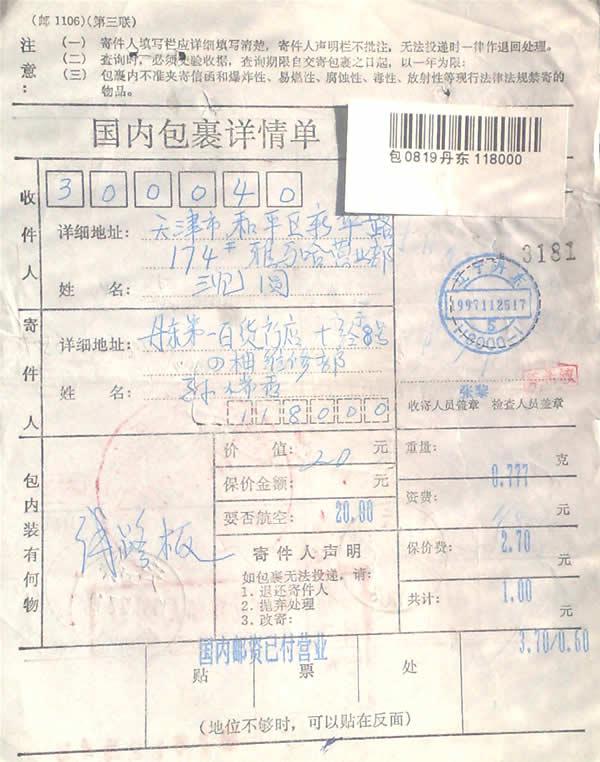 (邮 1106)(第三联)
注意:
(一) 寄件人填写栏应详细填写清楚，寄件人声明栏不批注，无法投递时一律作退回处理。
(二) 查询时，必须交验收据，查询期限自交寄包裹之日起，以一年为限:
(三) 包裹内不准夹寄信函和爆炸性、易燃性、腐蚀性、毒性、放射性等现行法律法规禁寄的
物品。
国内包裹详情单
包0819丹东118000
收件人
300040
详细地址: 天津市和平区新华路
174# 雅马哈营业部
姓 名:
3181
辽宁丹东
1997112517
5
118000-1
寄件人
详细地址: 丹东第一百货商店 十经路8号
四楼维修部
姓 名:
118000
张黎
收寄人员盖章 检查人员盖章
包内装有何物
线路板
价 值: 20 元
保价金额: 元
要否航空: 20.00
寄件人声明
如包裹无法投递，请:
1. 退还寄件人
2. 抛弃处理
3. 改寄:
重量: 0.777 克
资费: 元
保价费: 2.70 元
共计: 1.00 元
3.70/0.60
国内邮资已付营业
贴 票 处
(地位不够时，可以贴在反面)